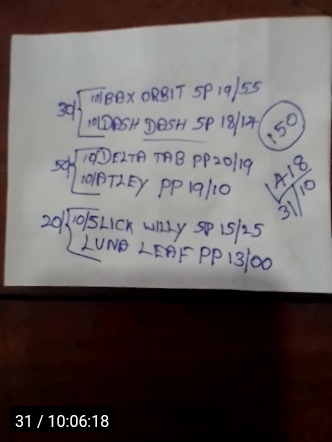 30/ 10/BAX ORBIT SP 19/55
10/DASH DASH SP 18/17
:50
50/ 10/DELTA TAB PP 20/19
10/ATLEY PP 19/10
A18
31/10
20/ 10/SLICK WILLY SP 15/25
LUNA LEAF PP 13/00
31 / 10:06:18